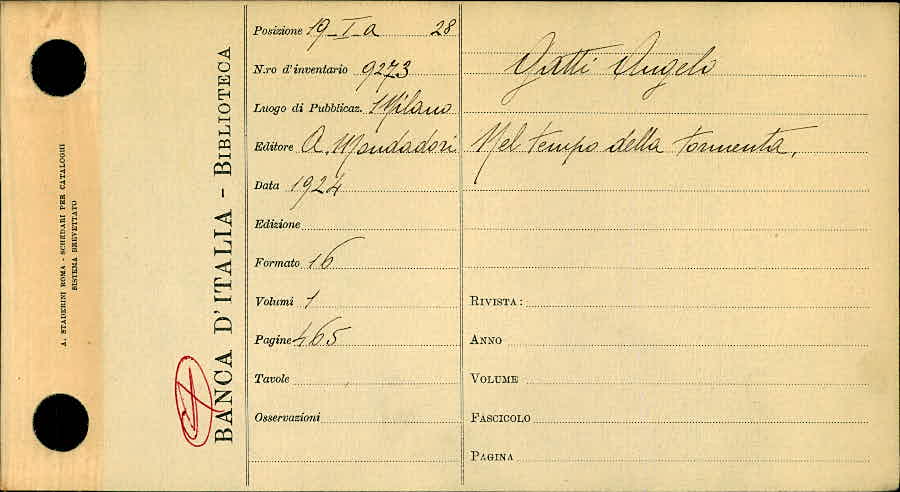 A. STADERINI ROMA - SCHEDARI PER CATALOGHI
SISTEMA BREVETTATO
BANCA D'ITALIA - BIBLIOTECA
Posizione 19-I-a 28
N.ro d'inventario 9273
Luogo di Pubblicaz. Milano
Editore A. Mondadori
Data 1924
Edizione
Formato 16
Volumi 1
Pagine 465
Tavole
Osservazioni
Gatti Angelo
Nel tempo della tormenta.
RIVISTA:
ANNO
VOLUME
FASCICOLO
PAGINA